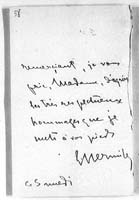 remerciant, je vous
prie, Madame, d'agréer
les très respectueux
hommages que je
mets à vos pieds
ce Samedi